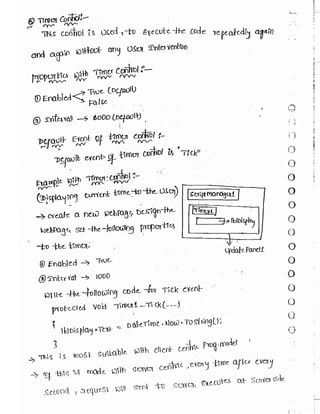 Timer Control:-
This control is used, to execute the code repeatedly again
and again without any user Intervention
properties with Timer Control:-
① Enabled → True (Default)
→ False
② Interval → 6000 (Default)
Default Event of timer control :-
Default event of timer control is "Tick"
Example with Timer control :-
(Displaying current time to the user)
→ create a new webpage, Design the
webpage, set the following properties
to the timer.
① Enabled → True
② Interval → 1000
Write the following code for Tick event
protected void Timer1_Tick(---)
{
lblDisplay.Text = DateTime.Now.ToString();
}
ScriptManager1
Timer1
lblDisplay
UpdatePanel1
→ This is most suitable with client centric prog. model
→ If this is made with server centric, every time after every
second, a request will sent to server, executes at server side